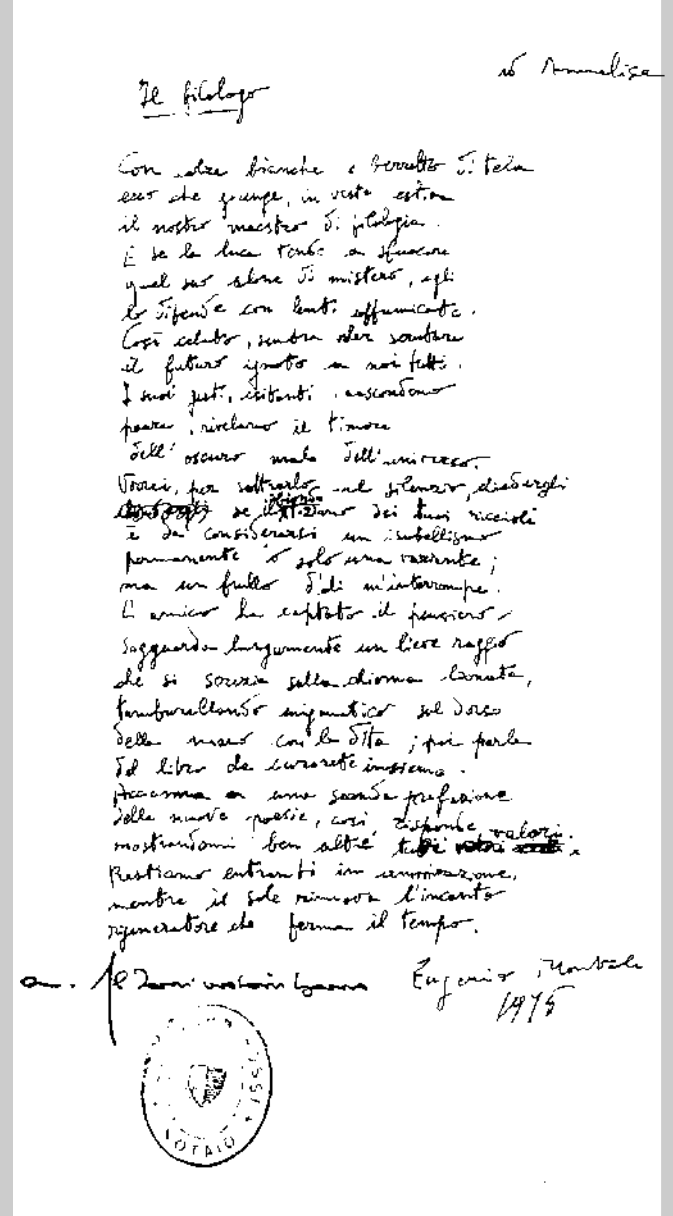 Annalisa
Il filologo
Con scarpe bianche e berretto di tela
ecco che giunge, in veste estiva
il nostro maestro di filologia.
E se la luce tende a sfuocare
quel suo alone di mistero, egli
lo difende con lenti affumicate.
Così celato, sembra voler scrutare
il futuro ignoto a noi tutti.
I suoi gesti, esitanti, nascondono
paura, rivelano il timore
dell'oscuro male dell'universo.
Vorrei, per sottrarlo al silenzio, chiedergli
se il biondo dei tuoi riccioli
è da considerarsi un isabellismo
permanente o solo una variante;
ma un frullo d'ali m'interrompe.
L'amico ha captato il pensiero
Sogguarda lungamente un lieve raggio
che si sulla chioma bronzata,
tamburellando enigmatico sul dorso
della mano con le dita; poi parla
del libro da curarsi insieme.
Accenna a una seconda prefazione
delle nuove poesie, così risponde,
mostrandomi ben altri valori.
Restiamo entrambi in ammirazione,
mentre il sole rinnova l'incanto
rigeneratore che ferma il tempo.
Eugenio Montale
1975
NOTAIO